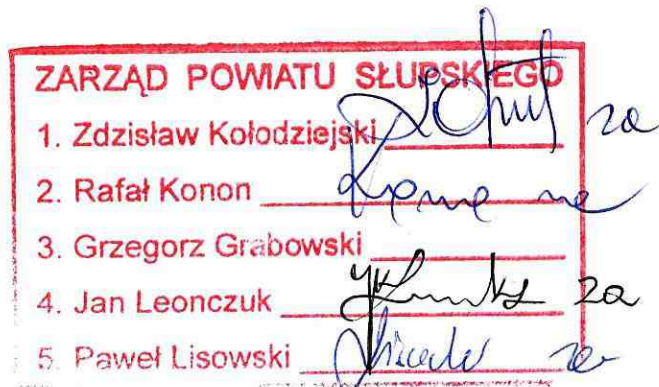 ZARZĄD POWIATU SŁUPSKIEGO
1. Zdzisław Kołodziejski za
2. Rafał Konon
3. Grzegorz Grabowski
4. Jan Leonczuk za
5. Paweł Lisowski za